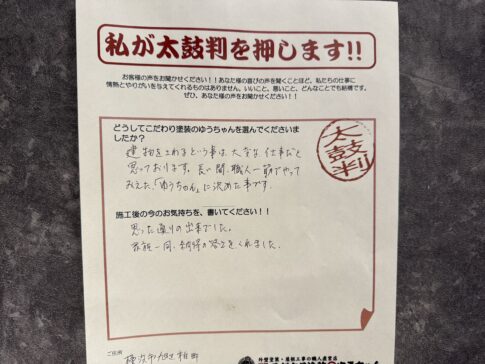 私が太鼓判を押します!!
お客様の声をお聞かせください!!あなた様の喜びの声を聞くことほど、私たちの仕事に
情熱とやりがいを与えてくれるものはありません。いいこと、悪いこと、どんなことでも結構です。
ぜひ、あなた様の声をお聞かせください!!
どうしてこだわり塗装のゆうちゃんを選んでくださいま
したか?
太鼓判
建物をさわるという事は、大変な仕事だと
思っております。長い間、職人一筋でやって
みえた、「ゆうちゃん」に決めた事です。
施工後の今のお気持ちを、書いてください!!
思った通りの出来でした。
家族一同、納得の答えをくれました。
ご住所
横浜市旭区
外壁塗装・屋根工事の職人直営店